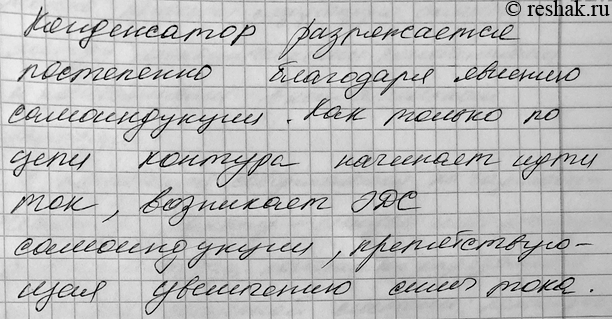 © reshak.ru
Конденсатор разряжается
постепенно благодаря явлению
самоиндукции. Как только по
цепи контура начинает идти
ток, возникает ЭДС
самоиндукции, препятствую-
щая увеличению силы тока.